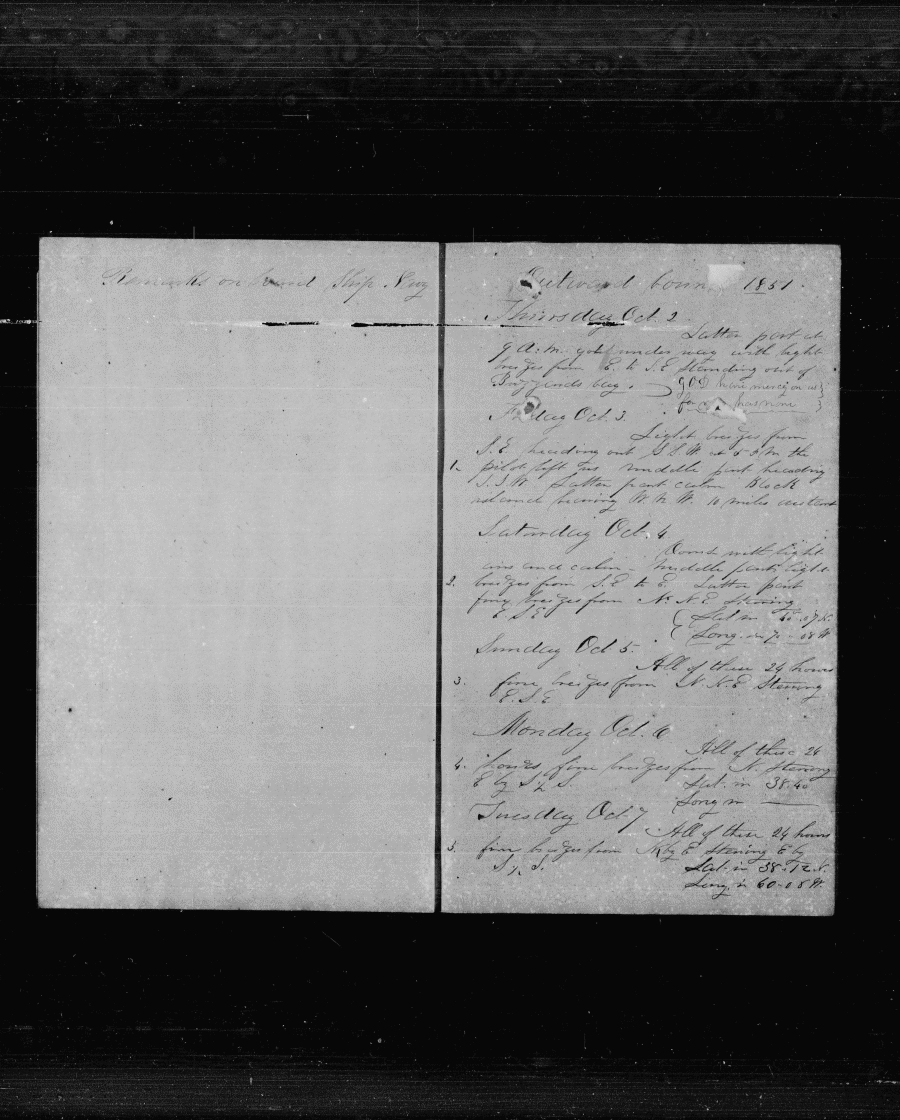 Remarks on board Ship Navy
Outward boun 1851.
Thursday Oct. 2.
Latter part at
9 A.M. got under way with light
breezes from E. to S.E standing out of
Buzzards bay. God have mercy on us
for has none
Friday Oct. 3.
Light breezes from
S.E heading out S.S.W at 5 P.M the
1. pilot left us middle part heading
S.S.W. Latter part calm Block
island bearing W.N.W. 10 miles distant
Saturday Oct. 4
Coms with light
airs and calm - middle part light
2. breezes from S.E to E. Latter part
fine breezes from N.N.E. Steering
E.S.E Lat in 40.07 N.
Long. in 7 . 08 W
Sunday Oct 5.
All of these 24 hours
3. fine breezes from N.N.E Steering
E.S.E
Monday Oct. 6
All of these 24
4. hours fine breezes from N. Steering
E by S ½ S. Lat. in 38.40
Long in
Tuesday Oct. 7
All of these 24 hours
5. fine breezes from N by E Steering E by
S ½ S. Lat. in 38.12 N.
Long. in 60-05 W.